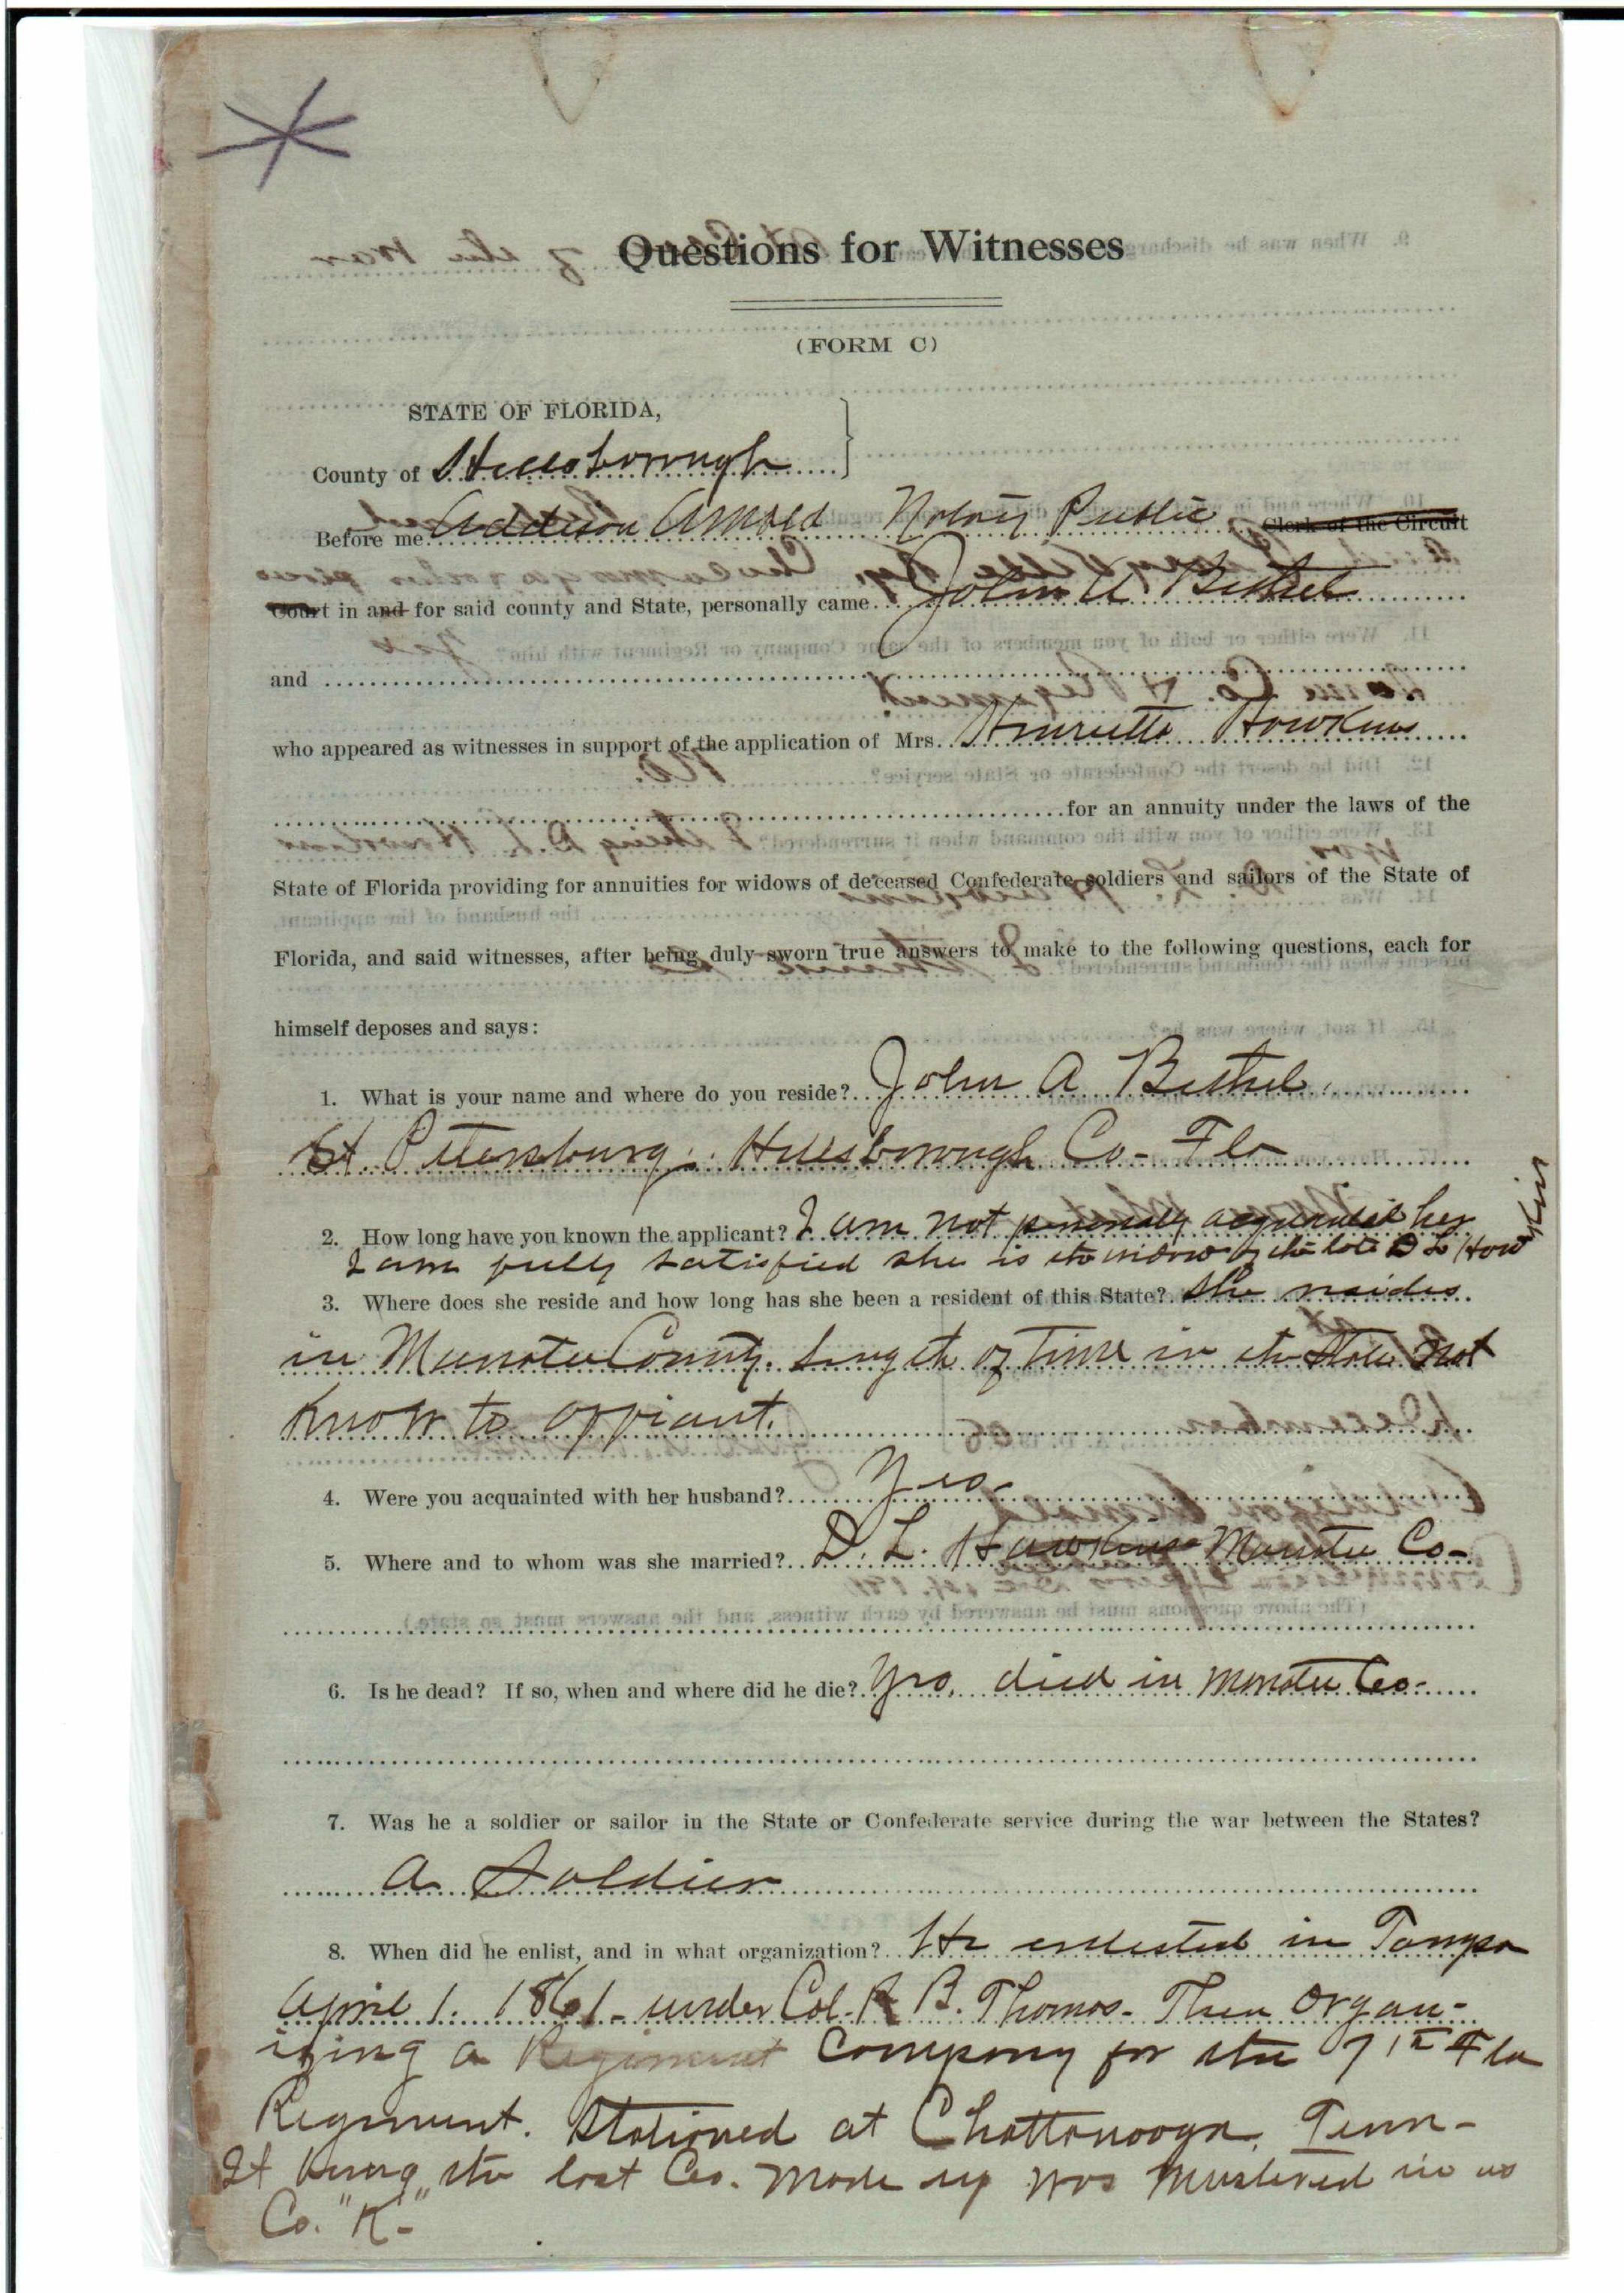 Questions for Witnesses
(FORM C)
STATE OF FLORIDA,
County of Hillsborough
Before me Addison Arnold Notary Public Clerk of the Circuit
Court in and for said county and State, personally came John A Bethel
and
who appeared as witnesses in support of the application of Mrs. Henrietta Hawkins
for an annuity under the laws of the
State of Florida providing for annuities for widows of deceased Confederate soldiers and sailors of the State of
Florida, and said witnesses, after being duly sworn true answers to make to the following questions, each for
himself deposes and says:
1. What is your name and where do you reside? John A Bethel
St Petersburg. Hillsborough Co- Fla
2. How long have you known the applicant? I am not personally acquainted her
I am fully satisfied she is the widow of the late D L Hawkins
3. Where does she reside and how long has she been a resident of this State? She resides
in Manatee County. Length of Time in the State Not
Know to affiant.
4. Were you acquainted with her husband? Yes-
5. Where and to whom was she married? D. L. Hawkins Manatee Co-
6. Is he dead? If so, when and where did he die? Yes, died in Manatee Co-
7. Was he a soldier or sailor in the State or Confederate service during the war between the States?
A Soldier
8. When did he enlist, and in what organization? He enlisted in Tampa
April 1. 1861- under Col. R B. Thomas- Then organ-
izing a Regiment Company for the 7th Fla
Regiment. Stationed at Chattanooga, Tenn-
It being the last Co. made up was mustered in as
Co. "K"-